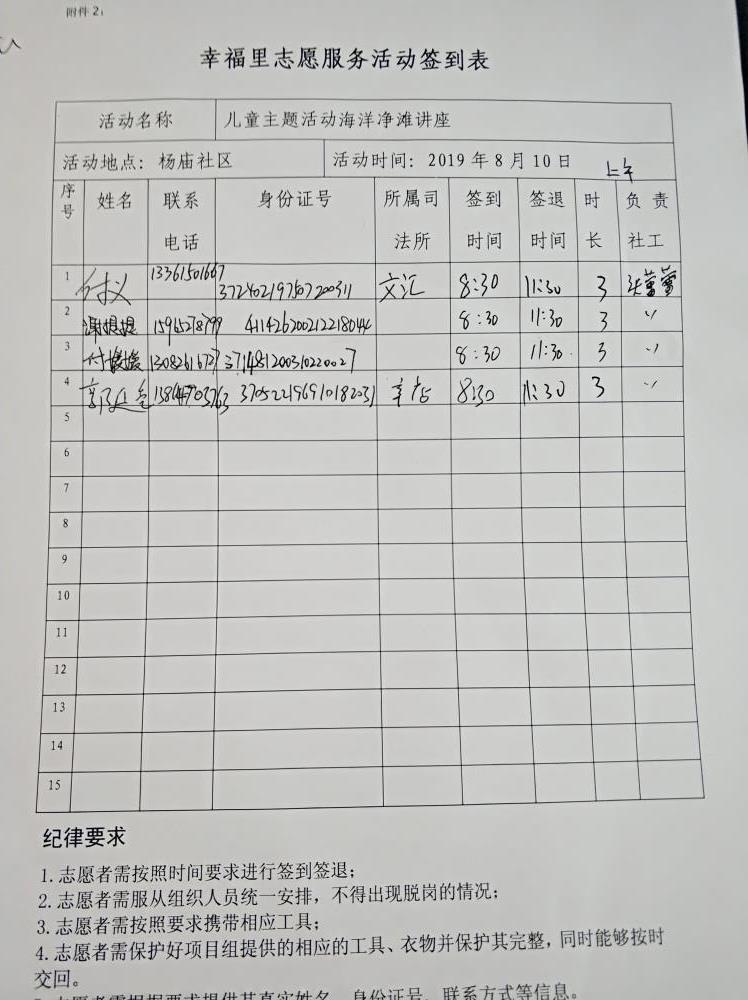 附件 2:
幸福里志愿服务活动签到表
活动名称 儿童主题活动海洋净滩讲座
活动地点: 杨庙社区 活动时间: 2019 年 8 月 10 日 上午
序号 姓名 联系电话 身份证号 所属司法所 签到时间 签退时间 时长 负责社工
1 付义 13361501667 372402197507200311 文汇 8:30 11:30 3
2 15915278799 411426200212218044 8:30 11:30 3 〃
3 付媛媛 13082616737 371481200310220027 8:30 11:30 3 〃
4 13864703763 370522196910182031 辛店 8:30 11:30 3 〃
5
6
7
8
9
10
11
12
13
14
15
纪律要求
1. 志愿者需按照时间要求进行签到签退;
2. 志愿者需服从组织人员统一安排，不得出现脱岗的情况;
3. 志愿者需按照要求携带相应工具;
4. 志愿者需保护好项目组提供的相应的工具、衣物并保护其完整，同时能够按时
交回。
志愿者需根据要求提供其真实姓名、身份证号、联系方式等信息。